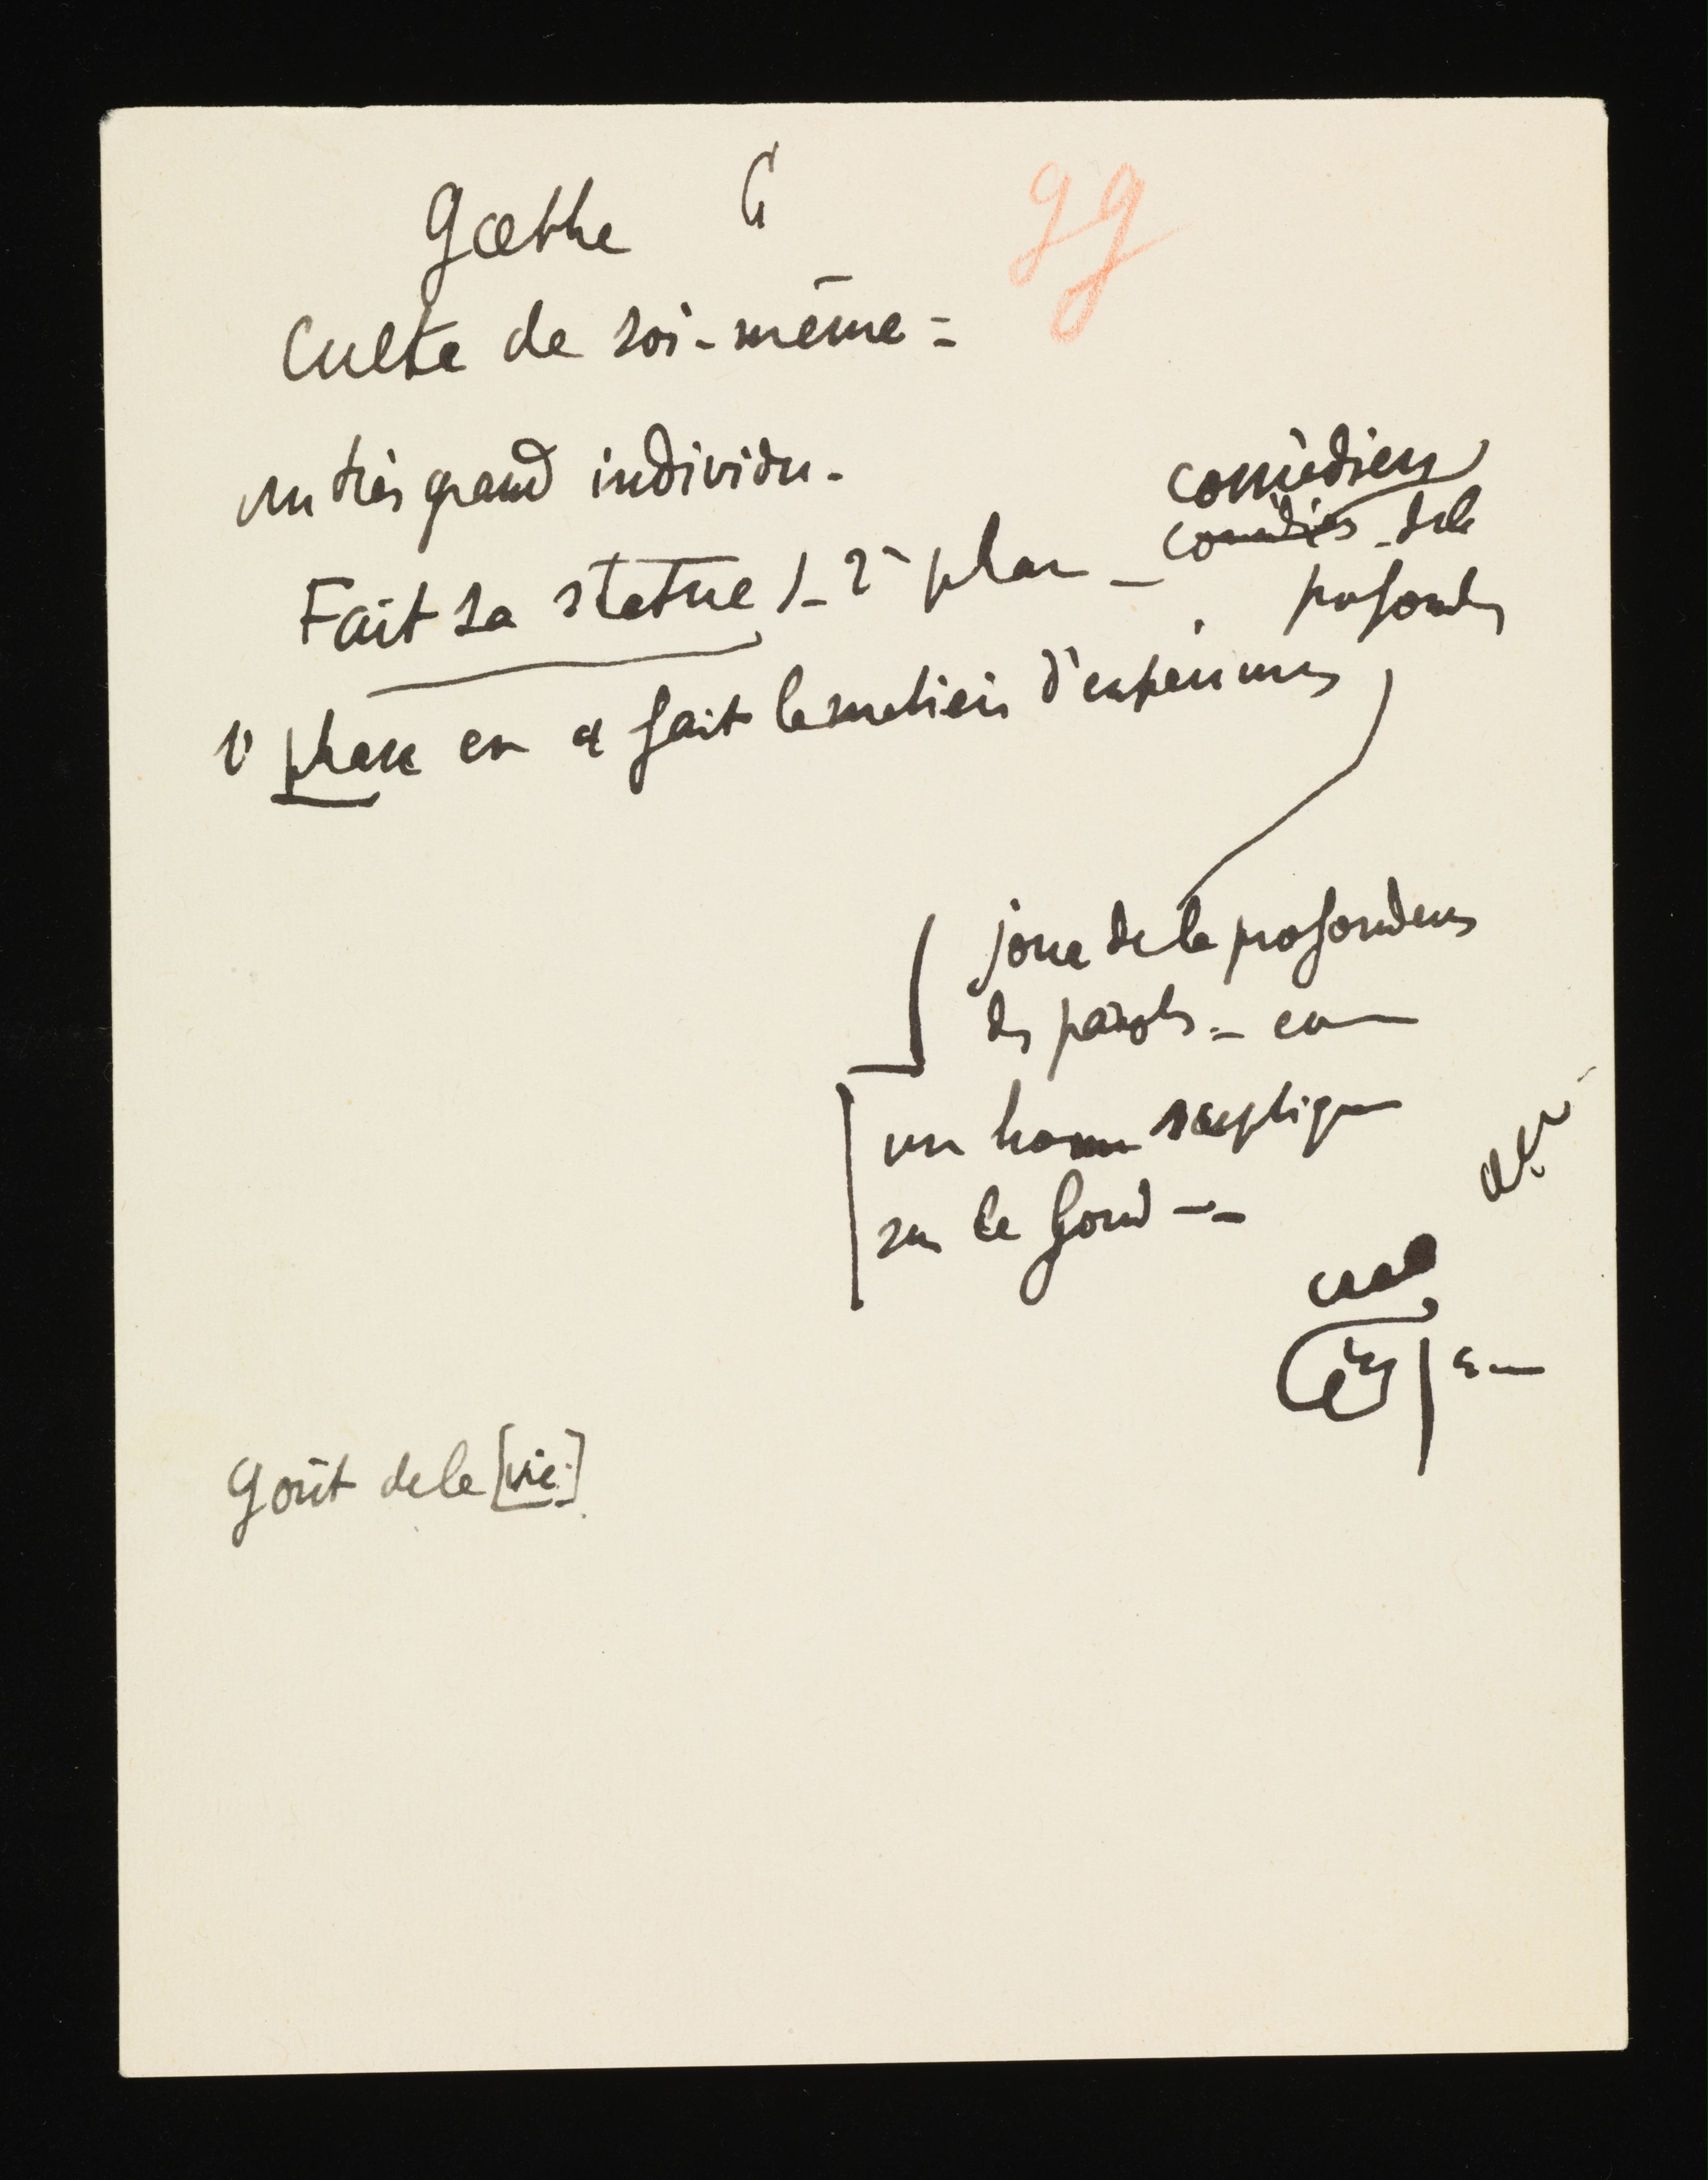 Gœthe G gg
Culte de soi-même =
un très grand individu -
comédien
Fait sa statue )- 2e phase - comédies - de la
profondeur
1e phase en a fait le métier d'expériences
joue de la profondeur
des paroles - comme
un homme sceptique
sur le fond --
Goût de la [vie]